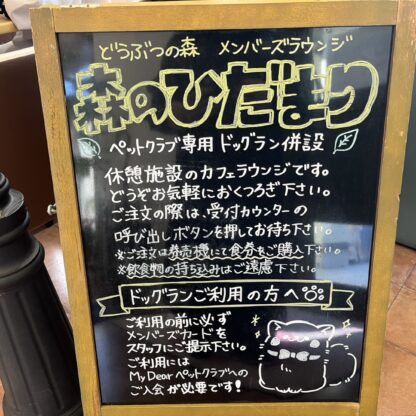 どうぶつの森 メンバーズラウンジ
森のひだまり
ペットクラブ専用 ドッグラン併設
休憩施設のカフェラウンジです。
どうぞお気軽におくつろぎ下さい。
ご注文の際は、受付カウンターの
呼び出しボタンを押してお待ち下さい。
※ご注文は券売機にて食券をご購入下さい。
※飲食物の持ち込みはご遠慮下さい。
ドッグランご利用の方へ
ご利用の前に必ず
メンバーズカードを
スタッフにご提示下さい。
ご利用には
My Dear ペットクラブへの
ご入会が必要です!